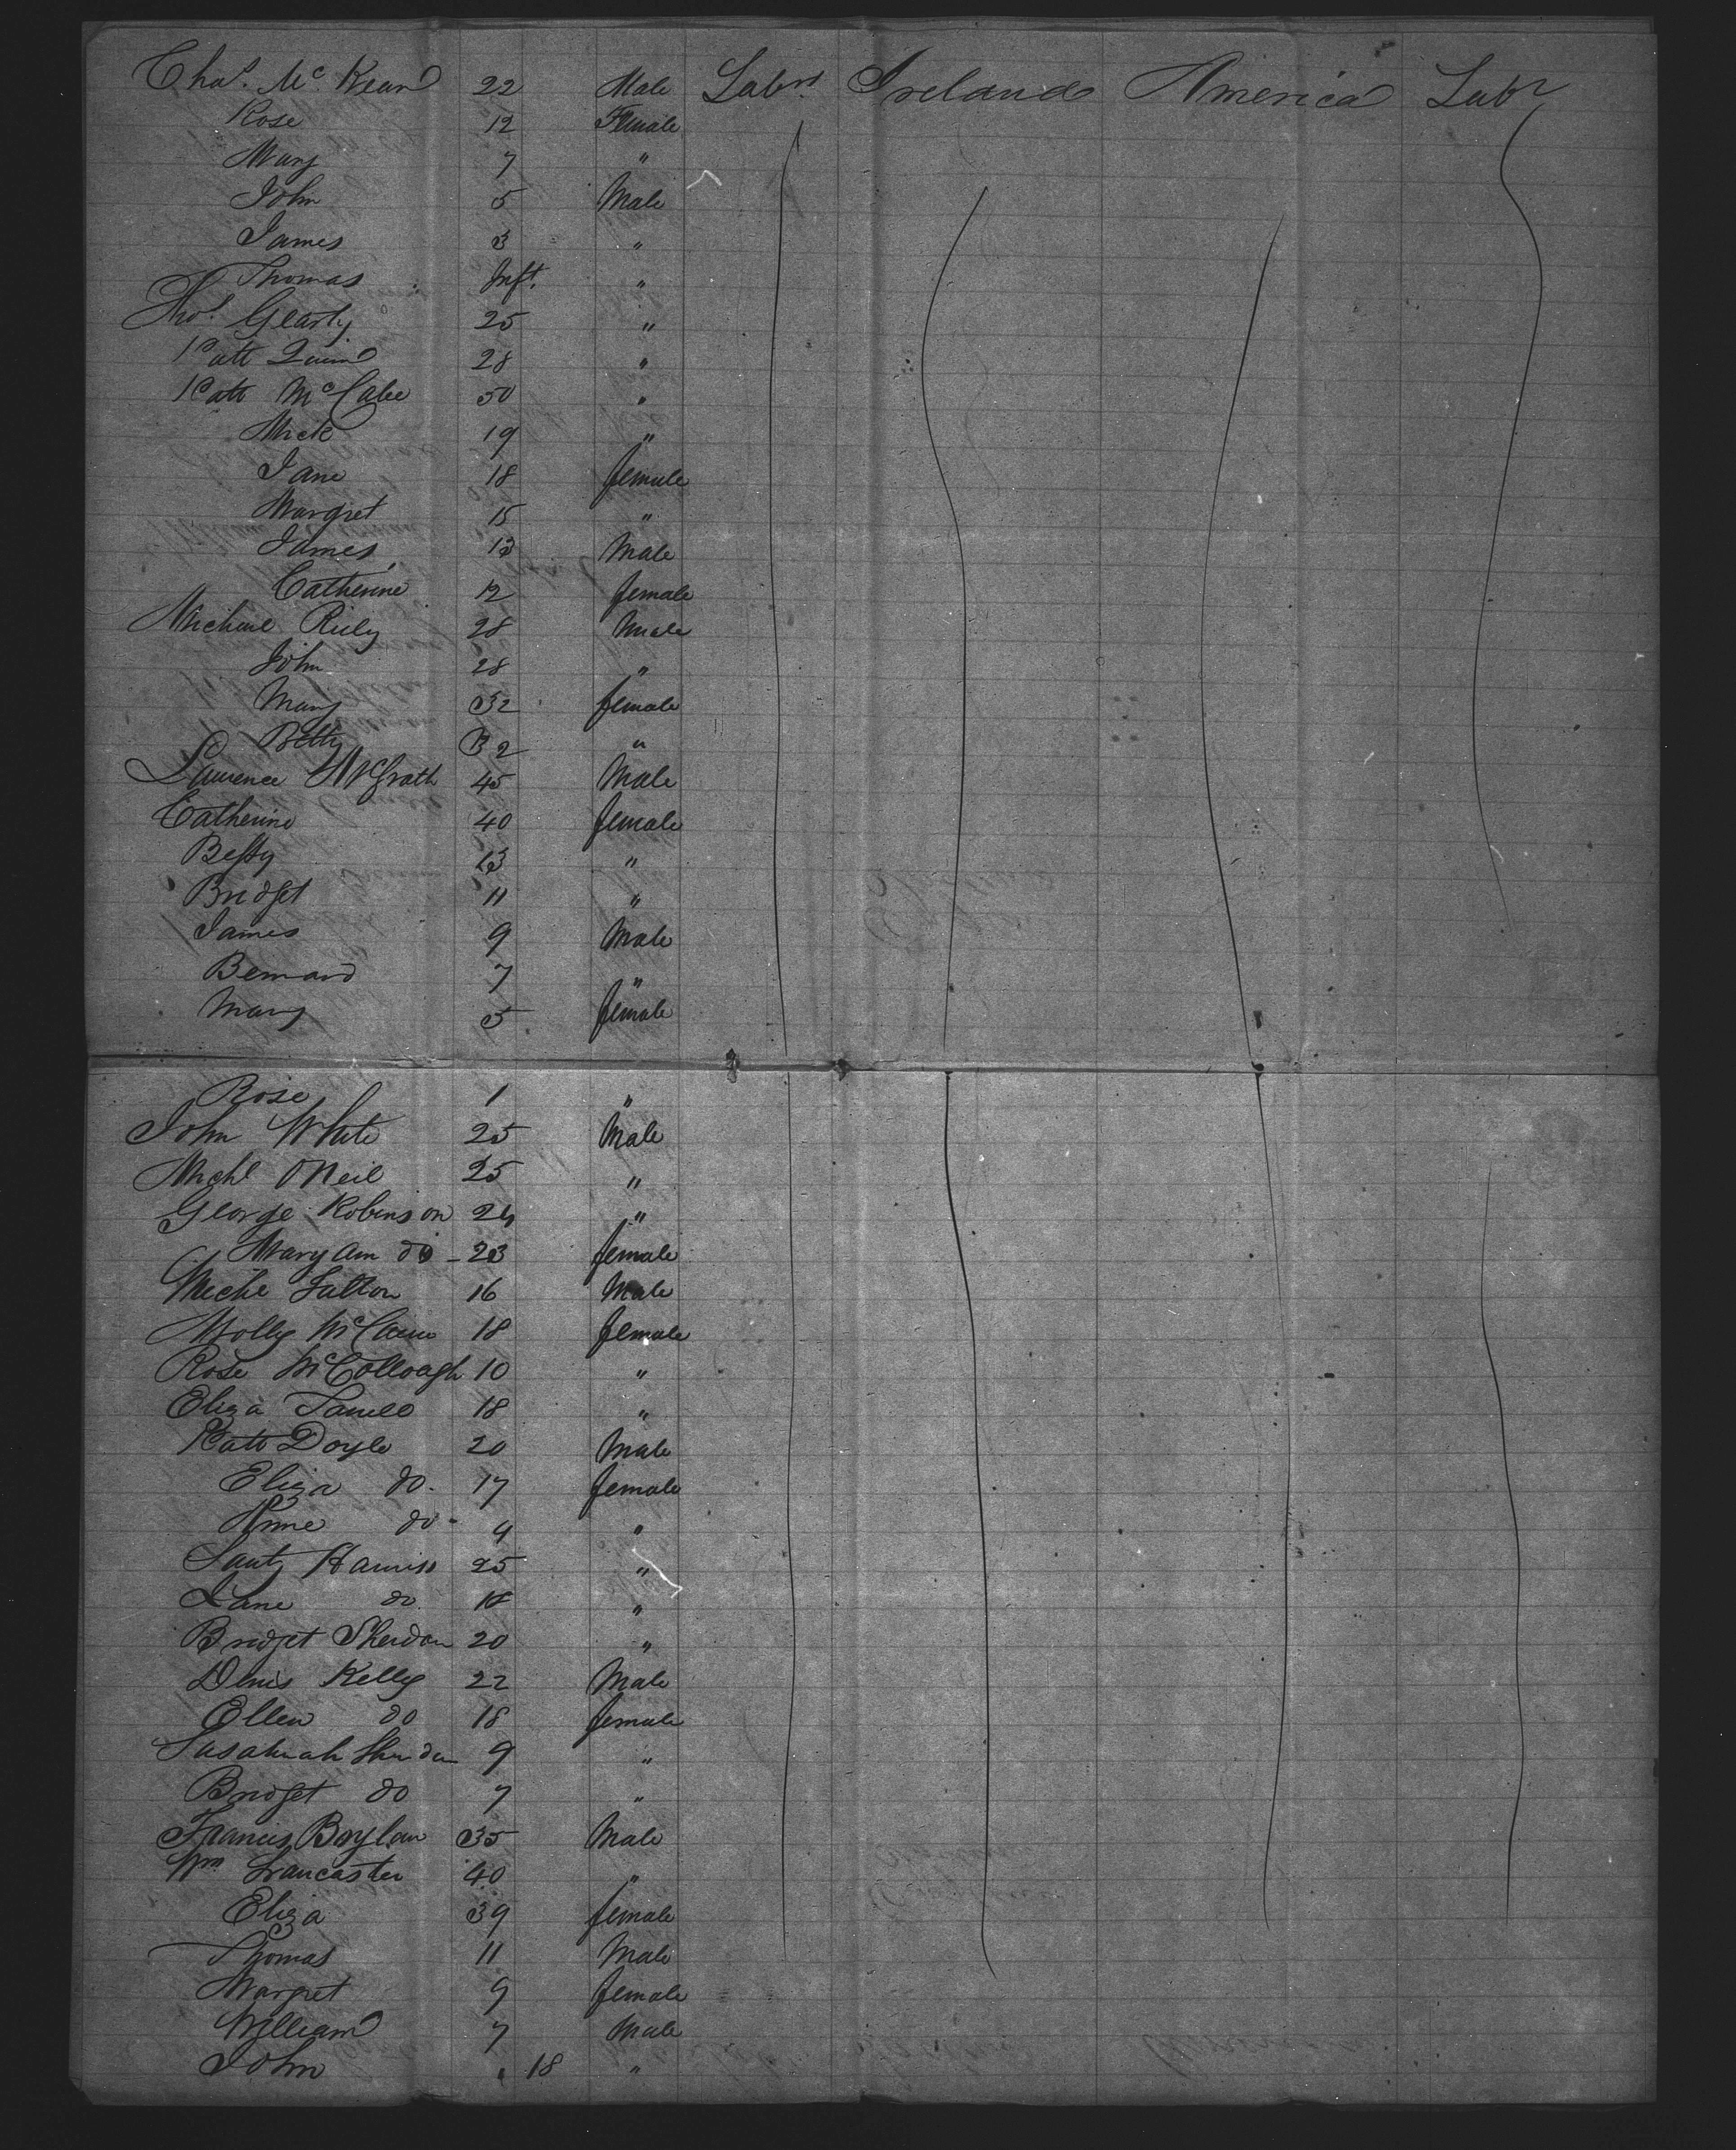 Chas. Mc Kean 22 Male Labr. Ireland America Labr
Rose 12 Female
Mary 7 "
John 5 Male
James 3 "
Thomas Inft. "
Thos. Gearty 25 "
Patt Quinn 28 "
Patt McCabe 50 "
Mick 19 "
Jane 18 female
Margret 15 "
James 13 Male
Catherine 12 female
Micheal Riely 28 Male
John 28 "
Mary 32 female
Betty 32 "
Laurence McGrath 45 Male
Catherine 40 female
Bessy 13 "
Bridget 11 "
James 9 Male
Bernard 7 "
Mary 5 female
Rose 1 "
John White 25 Male
Michl ONeil 25 "
George Robinson 24 "
Mary Ann do - 23 female
Miche Fulton 16 Male
Molly McCann 18 female
Rose McCollough 10 "
Eliza 18 "
Patt Doyle 20 Male
Eliza do. 17 female
Anne do - 4 "
Harriss 25 "
Jane do 18 "
Bridget Sheridan 20 "
Denis Kelly 22 Male
Ellen do 18 female
Susahnah Sheridan 9 "
Bridget do 7 "
Francis Boylan 35 Male
Wm Lrancaster 40 "
Eliza 39 female
Thomas 11 Male
Margret 9 female
William 7 Male
John 18 "